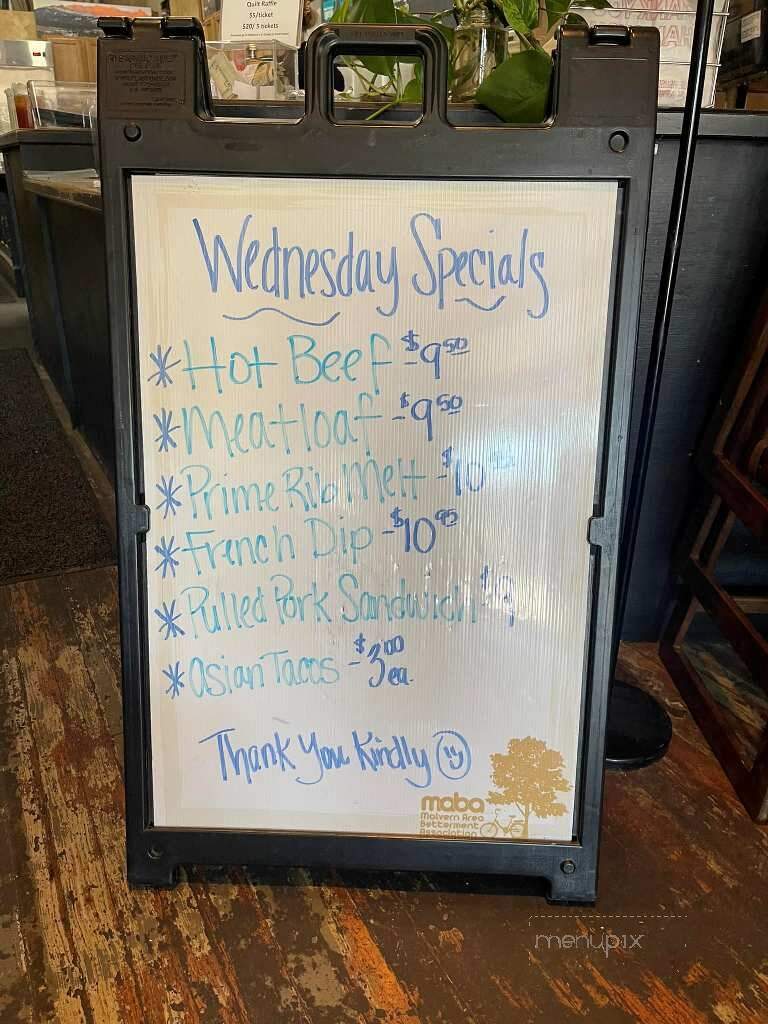 Quilt Raffle
$5/ticket
$20/ 5 tickets
Wednesday Specials
* Hot Beef - $9.50
* Meatloaf - $9.50
* Prime Rib Melt - $10
* French Dip - $10.95
* Pulled Pork Sandwich $9
* Asian Tacos - $3.00 ea.
Thank You Kindly
maba
Malvern Area
Betterment
Association
menupix